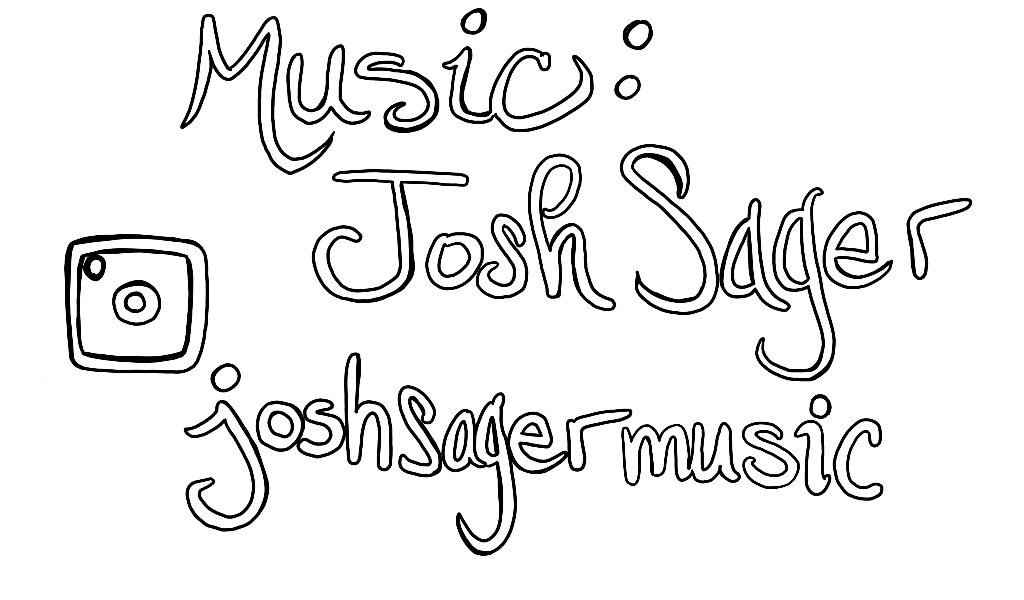 Music:
Josh Sager
joshsagermusic